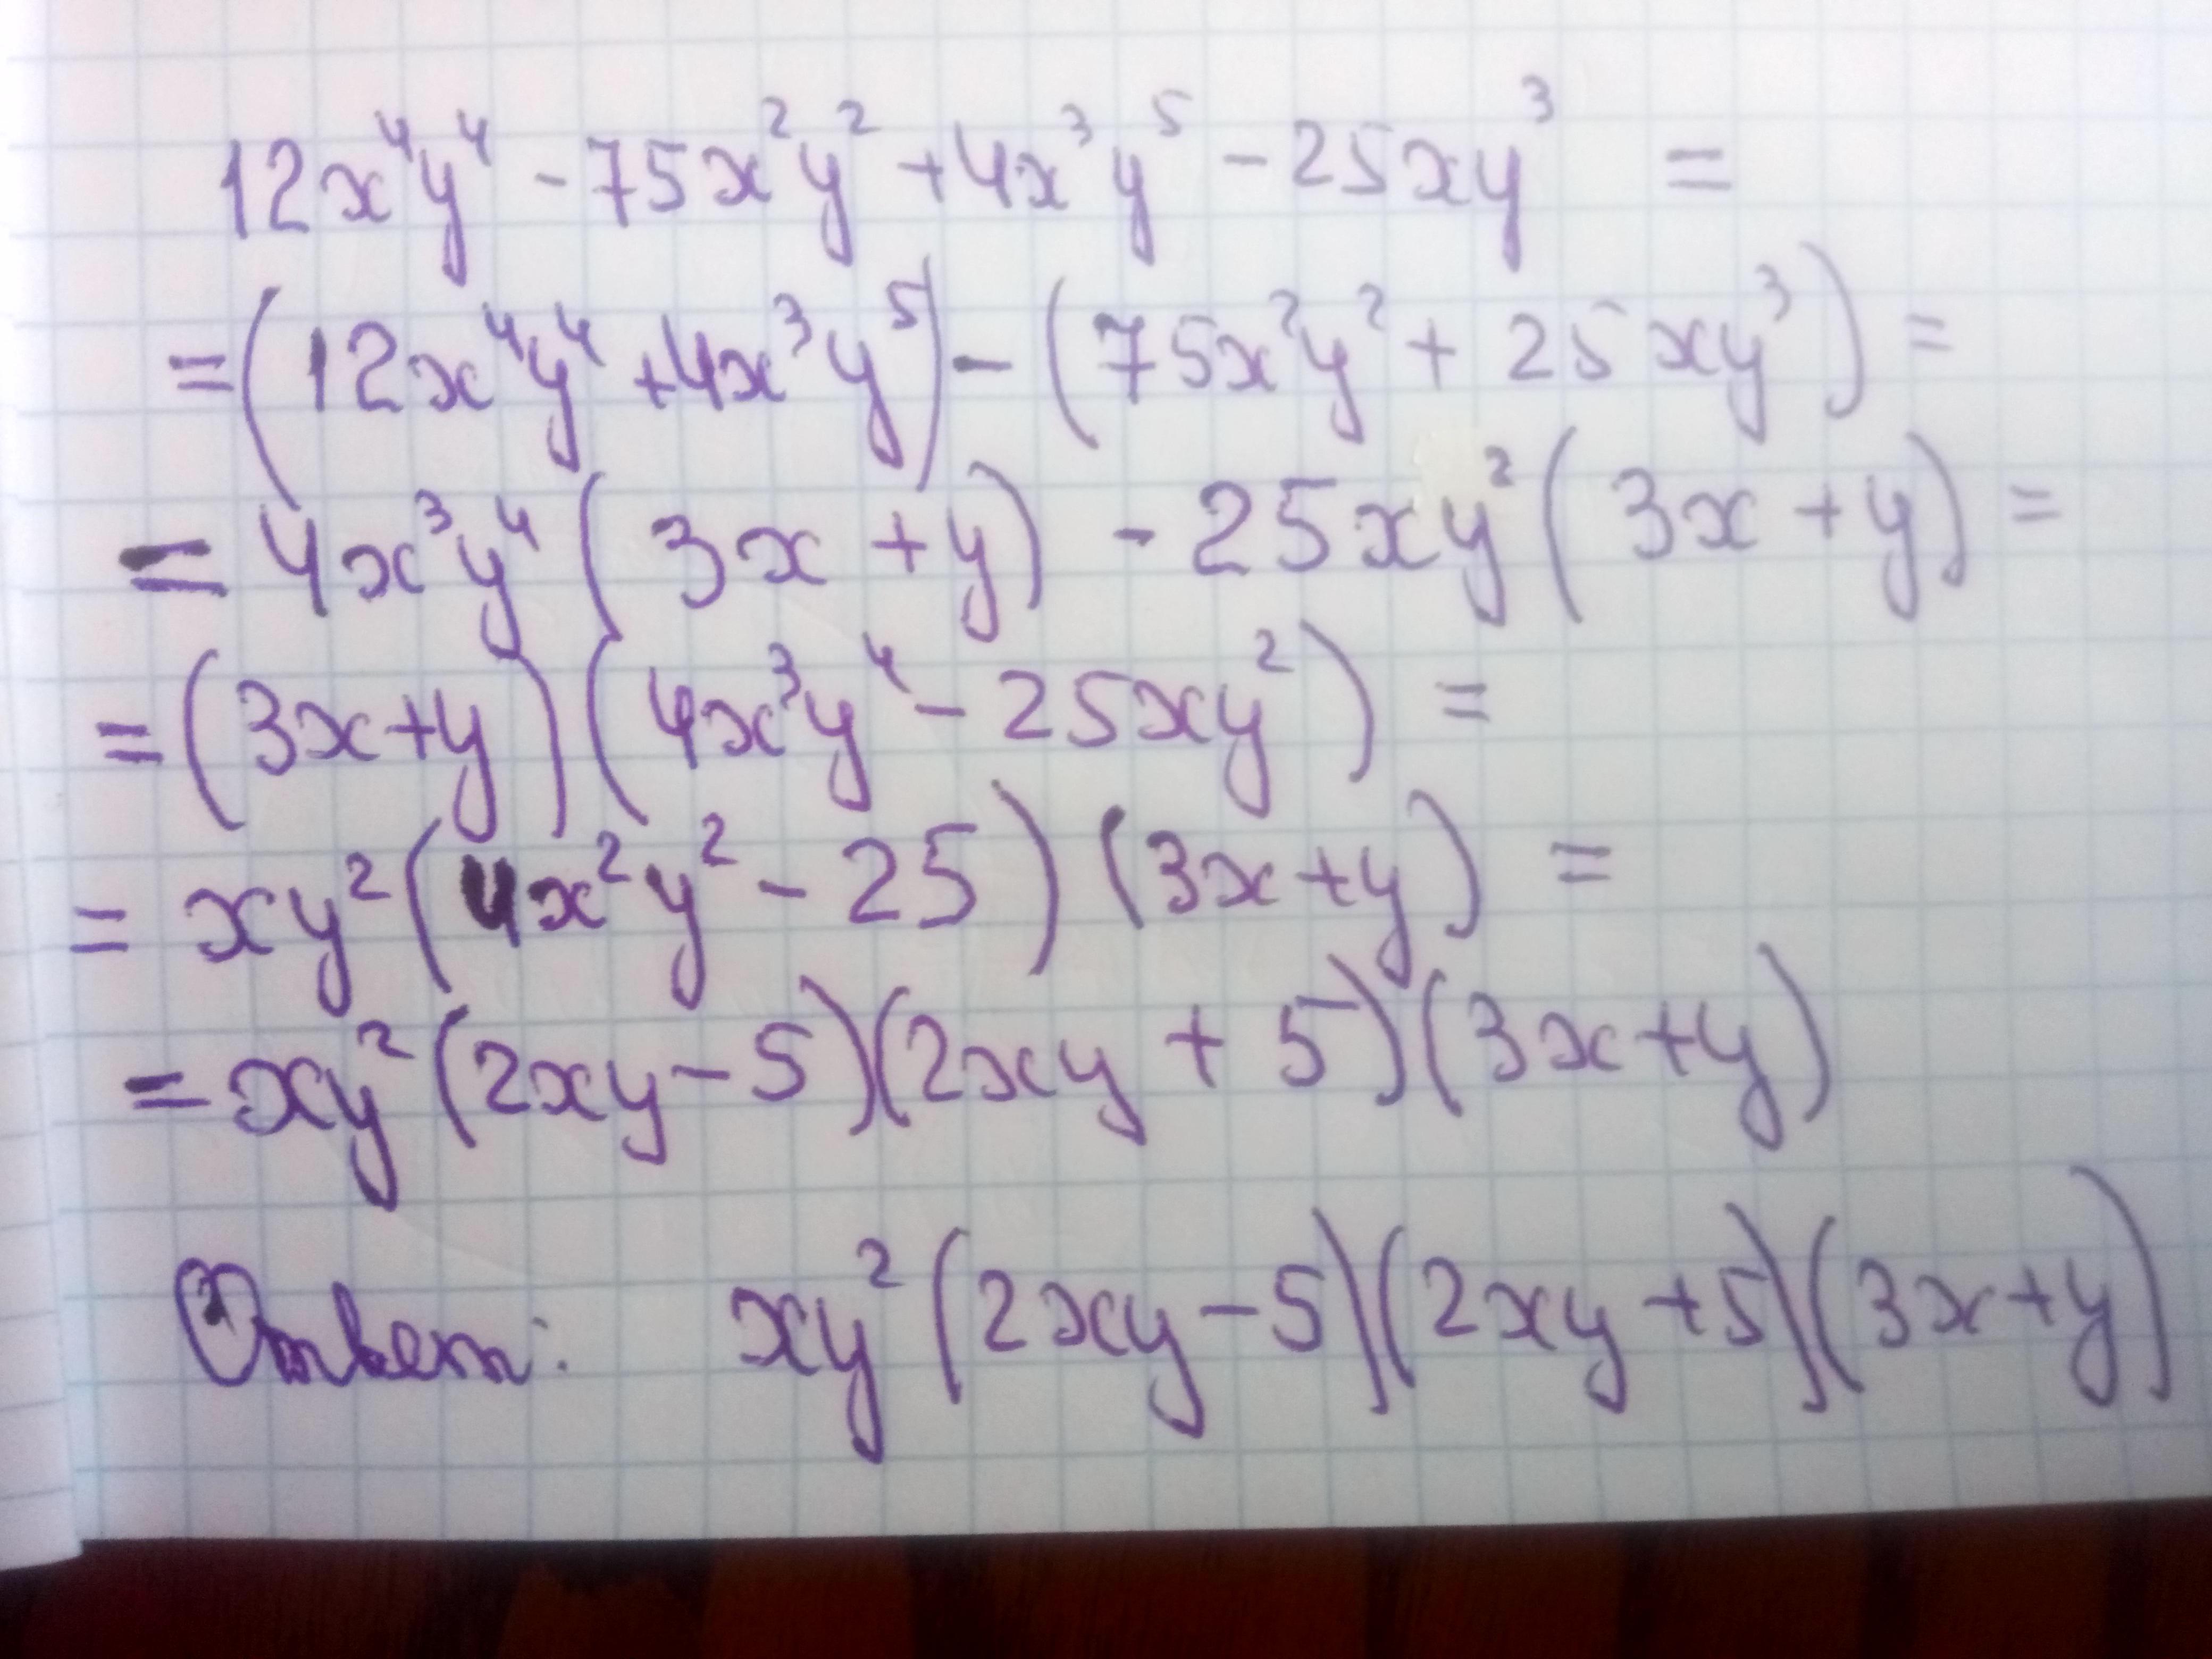 12x⁴y⁴ - 75x²y² + 4x³y⁵ - 25xy³ =
= (12x⁴y⁴ + 4x³y⁵) - (75x²y² + 25xy³) =
= 4x³y⁴(3x + y) - 25xy²(3x + y) =
= (3x + y)(4x³y⁴ - 25xy²) =
= xy²(4x²y² - 25)(3x + y) =
= xy²(2xy - 5)(2xy + 5)(3x + y)
Ответ: xy²(2xy - 5)(2xy + 5)(3x + y)